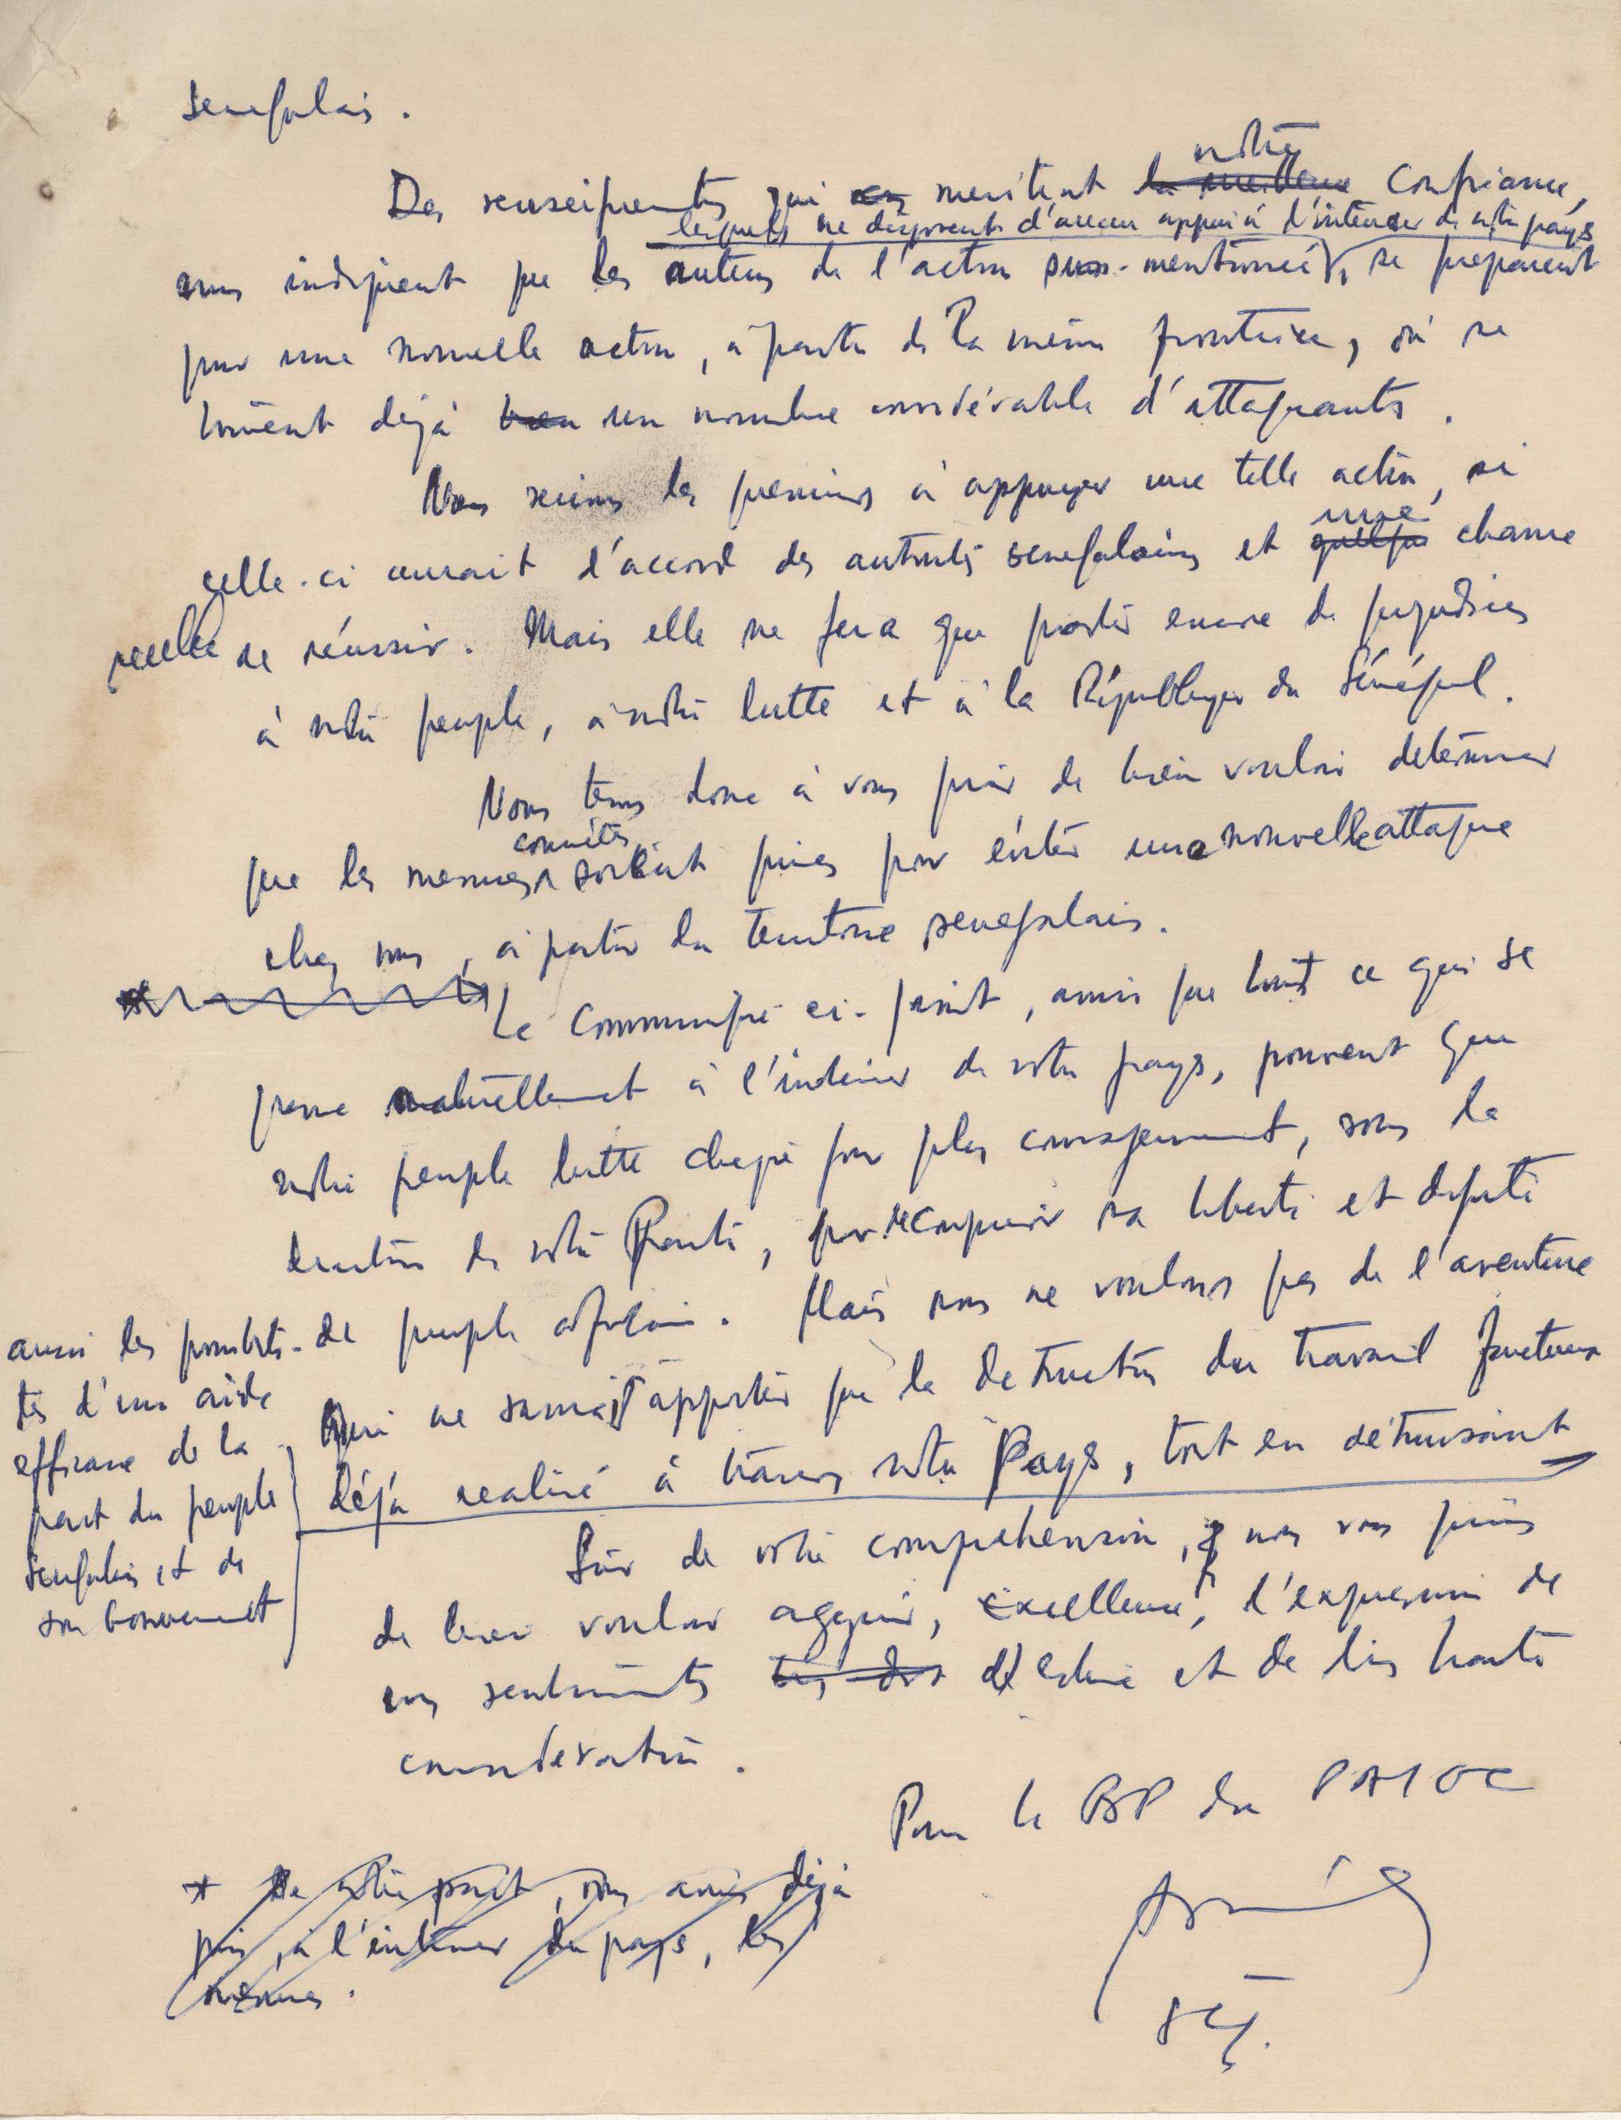 senegalais.
notre
Des renseignements qui meritent la meilleure confiance,
lesquels ne disposent d'aucun appui à l'intérieur de notre pays
nous indiquent que les auteurs de l'action sus-mentionnée, se preparent
pour une nouvelle action, à partir de la même frontière, où se
trouvent déjà bien un nombre considérable d'attaquants.
Nous serions les premiers à appuyer une telle action, si
une
celle-ci aurait l'accord des autorités senegalaises et quelque chance
réelle de réussir. Mais elle ne fera que porter encore de prejudices
à notre peuple, à notre lutte et à la République du Sénégal.
Nous tenons donc à vous prier de bien vouloir determiner
concrètes
que les mesures soient prises pour éviter une nouvelle attaque
chez nous, à partir du territoire senegalais.
Le Communiqué ci-joint, ainsi que tout ce qui se
passe actuellement à l'intérieur de notre pays, prouvent que
notre peuple lutte chaque jour plus courageusement, sous la
direction de notre Parti, pour reconquerir sa liberté et dignité
de peuple africain. Mais nous ne voulons pas de l'aventure
qui ne saurait apporter que la destruction du travail fructueux
déjà realisé à travers notre Pays, tout en détruisant
aussi les possibili-
tés d'une aide
efficace de la
part du peuple
senegalais et de
son Gouvernement
Sûr de votre comprehension, nous vous prions
de bien vouloir agréer, Excellence, l'expression de
nos sentiments d'estime et de très haute
consideration.
Pour le BP du PAIGC
* De notre part, nous avons déjà
pris, à l'intérieur du pays, les
mesures.
SG.